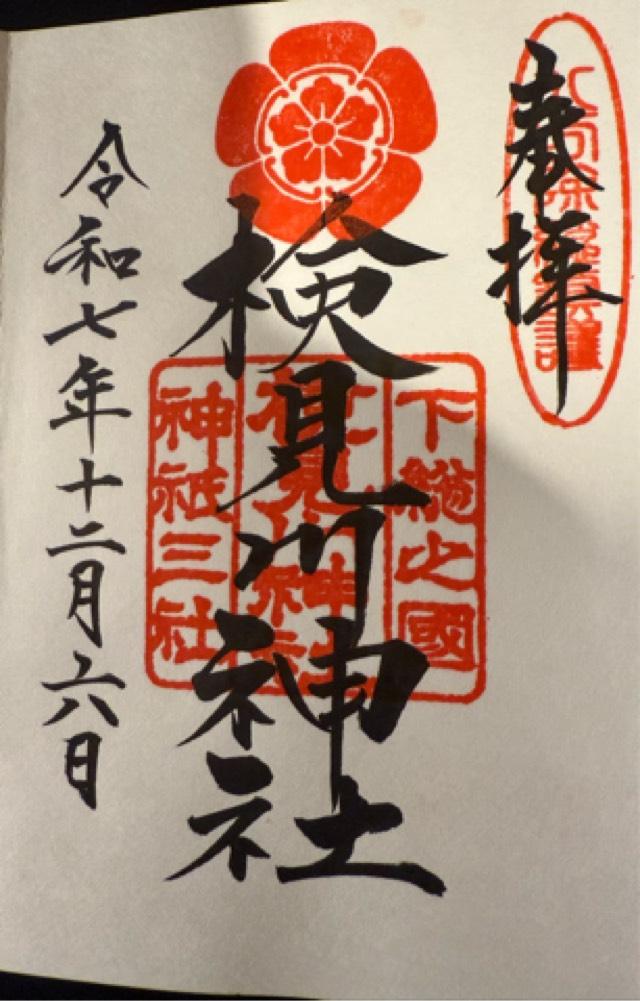 奉拝
八方除総鎮護
下総之國
検見川神社
検見川神社
神祇三社
令和七年十二月六日